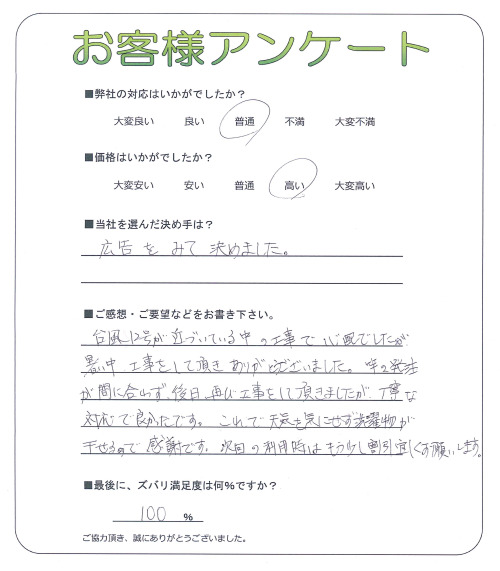 お客様アンケート
■弊社の対応はいかがでしたか？
大変良い 良い 普通 不満 大変不満
■価格はいかがでしたか？
大変安い 安い 普通 高い 大変高い
■当社を選んだ決め手は？
広告をみて決めました。
■ご感想・ご要望などをお書き下さい。
台風12号が近づいている中の工事で心配でしたが
暑い中工事をして頂きありがとうございました。竿の発注
が間に合わず、後日、再び工事をして頂きましたが、丁寧な
対応で良かったです。これで天気を気にせず洗濯物が
干せるので感謝です。次回の利用時はもう少し割引宜しくお願いします。
■最後に、ズバリ満足度は何％ですか？
100 %
ご協力頂き、誠にありがとうございました。